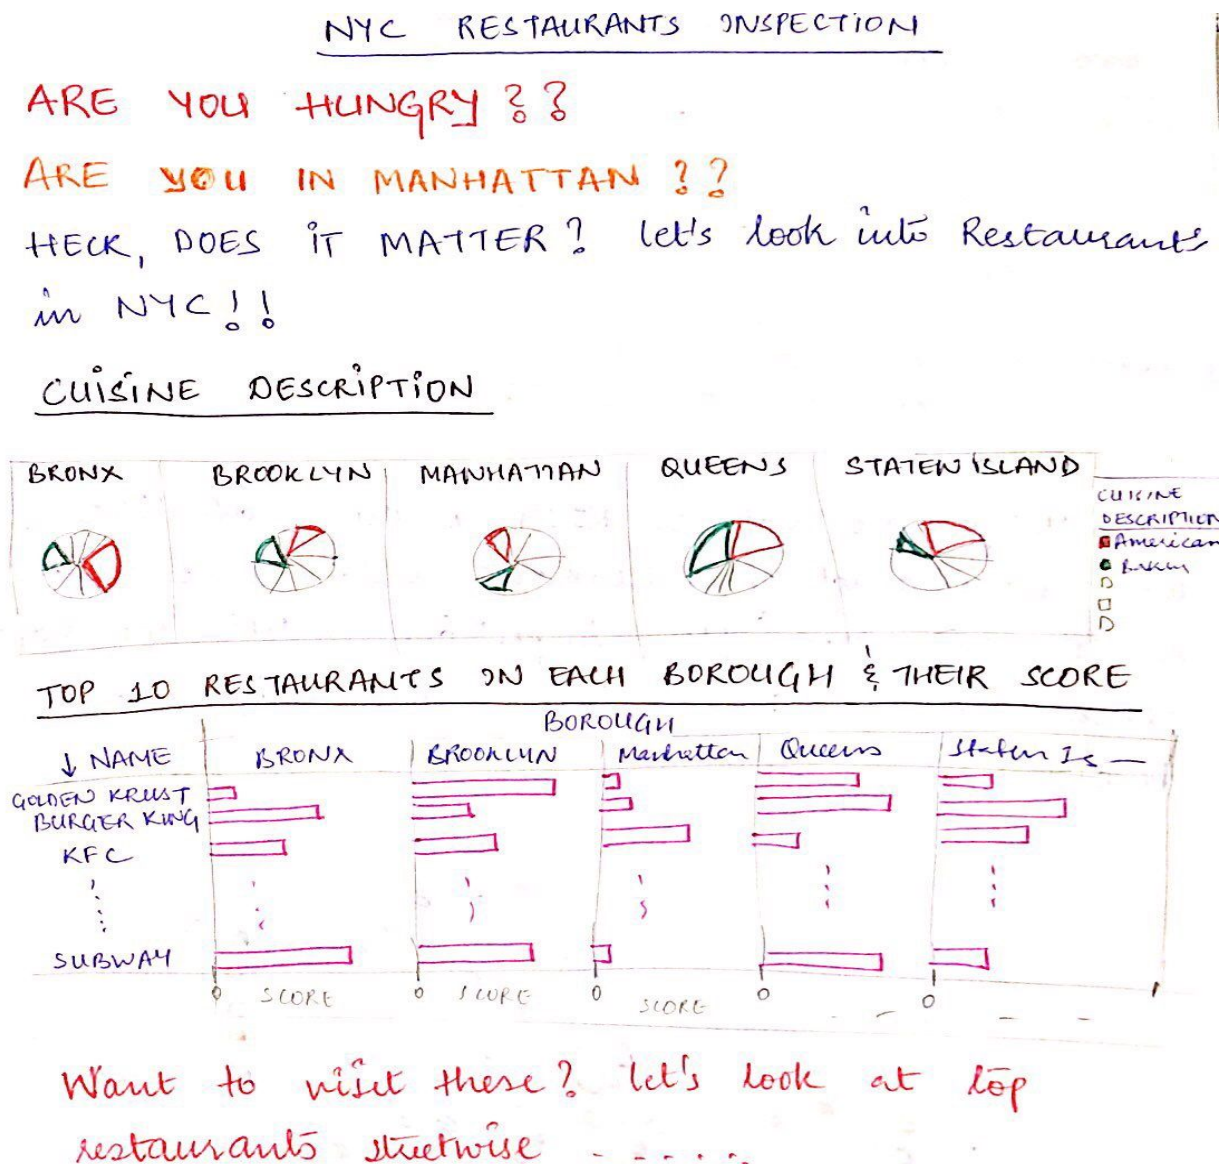 NYC RESTAURANTS INSPECTION
ARE YOU HUNGRY??
ARE YOU IN MANHATTAN??
HECK, DOES IT MATTER? let's look into Restaurants
in NYC!!
CUISINE DESCRIPTION
BRONX BROOKLYN MANHATTAN QUEENS STATEN ISLAND
CUISINE
DESCRIPTION
American
TOP 10 RESTAURANTS IN EACH BOROUGH & THEIR SCORE
BOROUGH
↓ NAME BRONX BROOKLYN Manhattan Queens Staten Is —
GOLDEN KRUST
BURGER KING
KFC
SUBWAY
0 SCORE 0 SCORE 0 SCORE 0 0
Want to visit these? let's look at top
restaurants streetwise ......